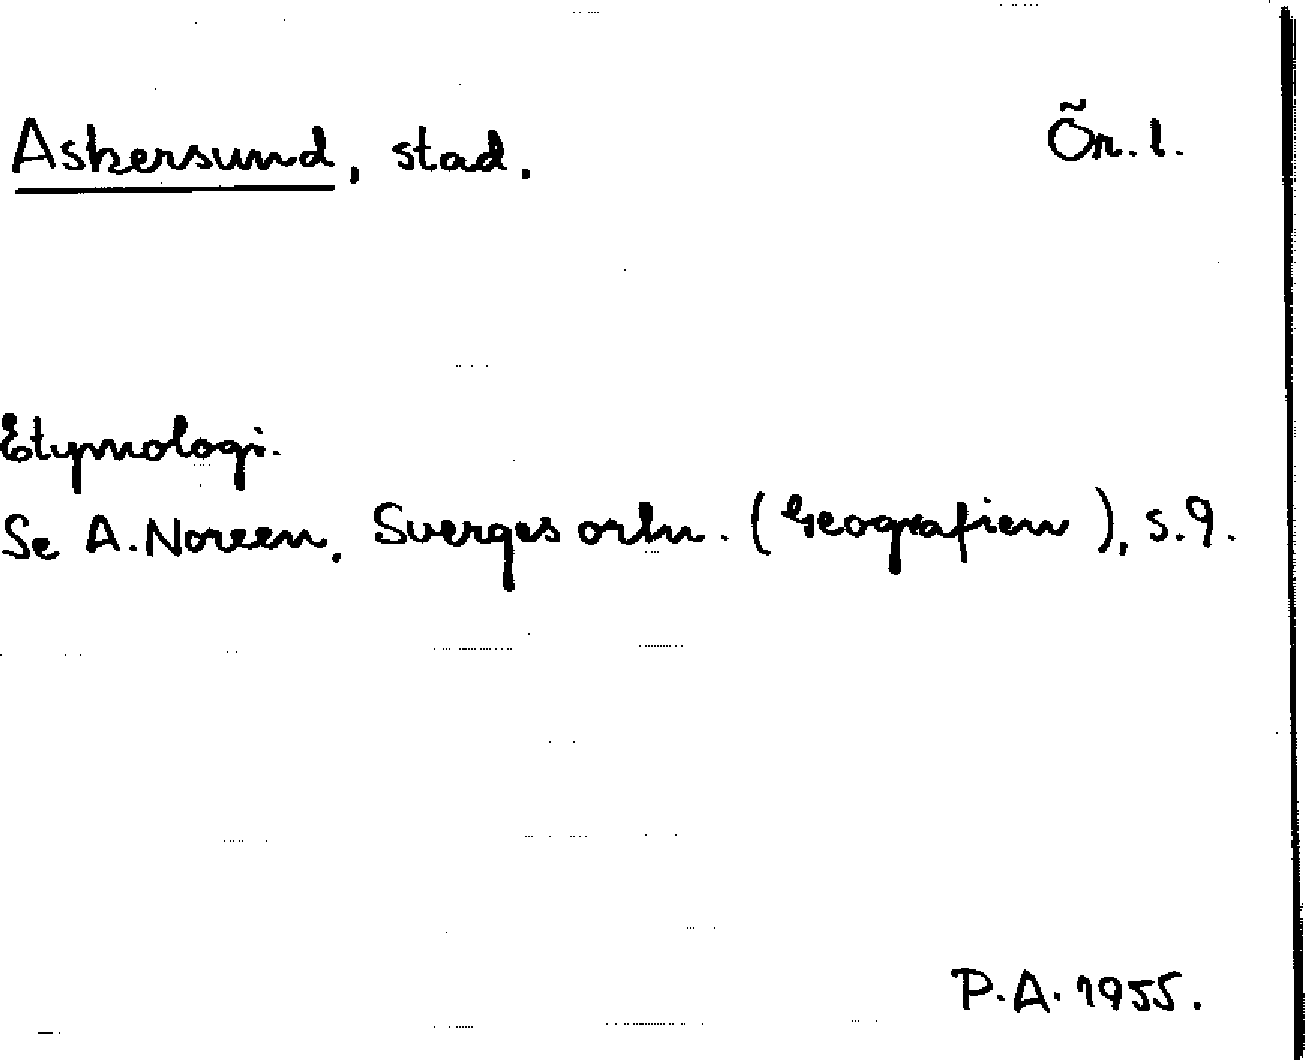 Askersund, stad. Ör. l.
Etymologi.
Se A. Noreen, Sverges ortn. (Geografien), s. 9.
P. A. 1955.